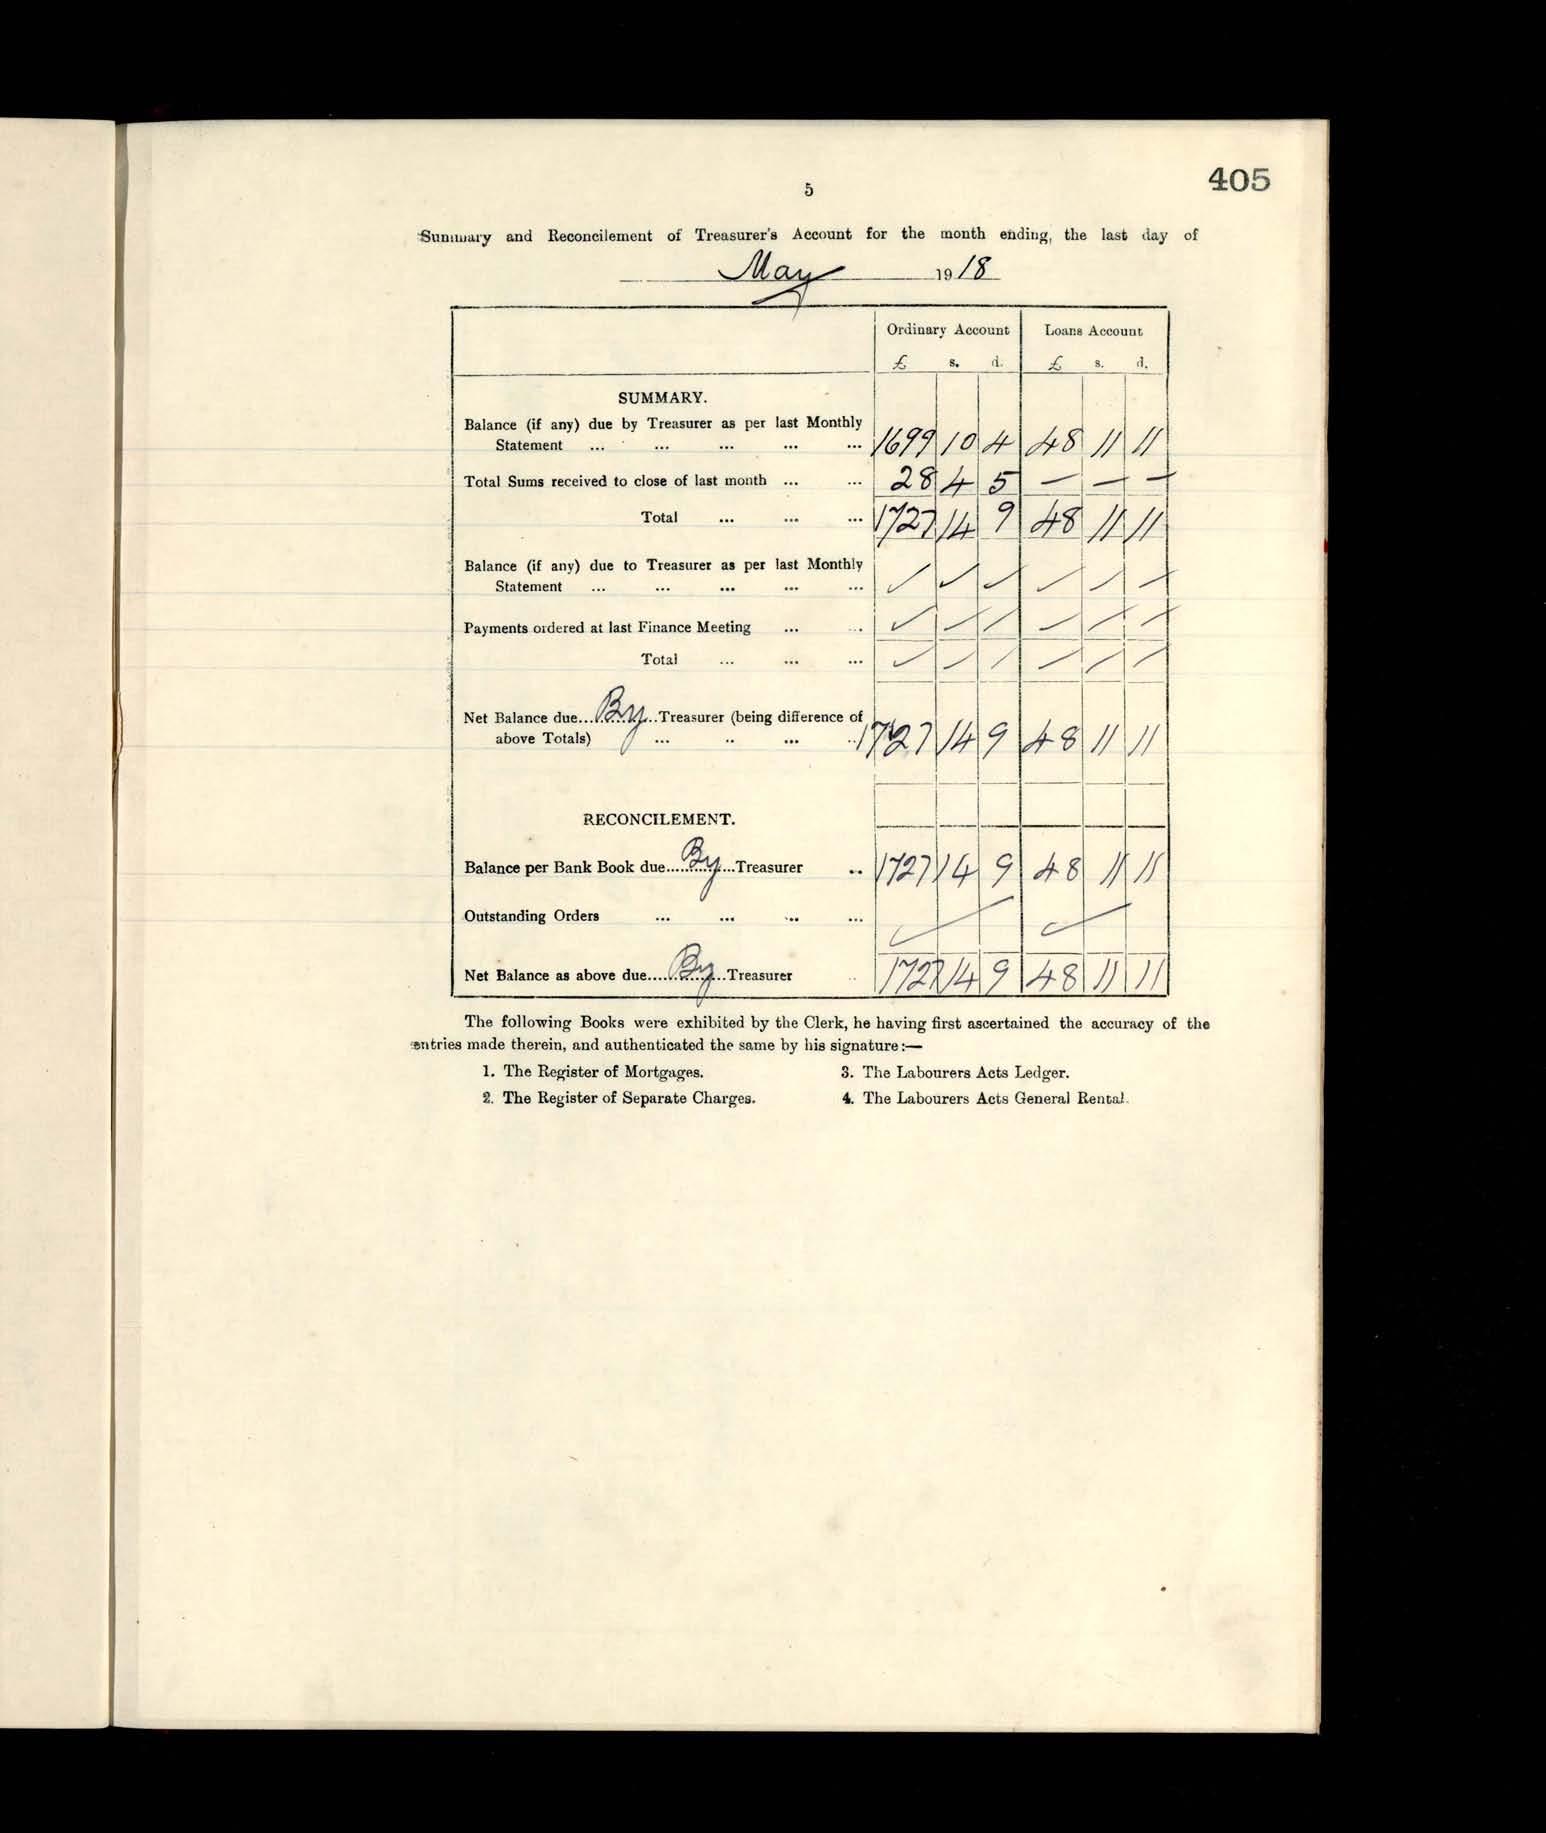 405
5
Summary and Reconcilement of Treasurer's Account for the month ending, the last day of
May 1918
Ordinary Account Loans Account
£ s. d. £ s. d.
SUMMARY.
Balance (if any) due by Treasurer as per last Monthly
Statement ... ... ... ... ... 1699 10 4 48 11 11
Total Sums received to close of last month ... ... 28 4 5 — — —
Total ... ... ... 1727 14 9 48 11 11
Balance (if any) due to Treasurer as per last Monthly
Statement ... ... ... ... ... ✓ ✓ ✓ ✓ ✓ ✓
Payments ordered at last Finance Meeting ... ... ✓ ✓ ✓ ✓ ✓ ✓
Total ... ... ... ✓ ✓ ✓ ✓ ✓ ✓
Net Balance due...By...Treasurer (being difference of
above Totals) ... .. ... .. 1727 14 9 48 11 11
RECONCILEMENT.
Balance per Bank Book due......By...Treasurer .. 1727 14 9 48 11 11
Outstanding Orders ... ... ... ... ✓ ✓
Net Balance as above due......By...Treasurer .. 1727 14 9 48 11 11
The following Books were exhibited by the Clerk, he having first ascertained the accuracy of the
entries made therein, and authenticated the same by his signature:—
1. The Register of Mortgages. 3. The Labourers Acts Ledger.
2. The Register of Separate Charges. 4. The Labourers Acts General Rental.